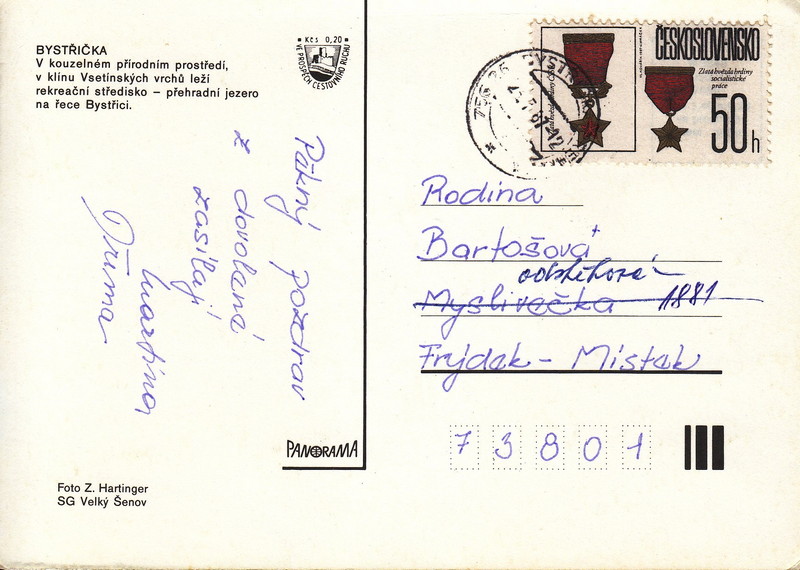 BYSTŘIČKA
V kouzelném přírodním prostředí,
v klínu Vsetínských vrchů leží
rekreační středisko – přehradní jezero
na řece Bystřici.
Kčs 0,20
VE PROSPĚCH CESTOVNÍHO RUCHU
Pěkný pozdrav
z dovolené
zasílají
Martina
Jiřina
PANORAMA
Foto Z. Hartinger
SG Velký Šenov
ČESKOSLOVENSKO
Zlatá hvězda hrdiny
socialistické
práce
50 h
Rodina
Bartošová
odstěhová
Myslivečka 1881
Frýdek - Místek
73801